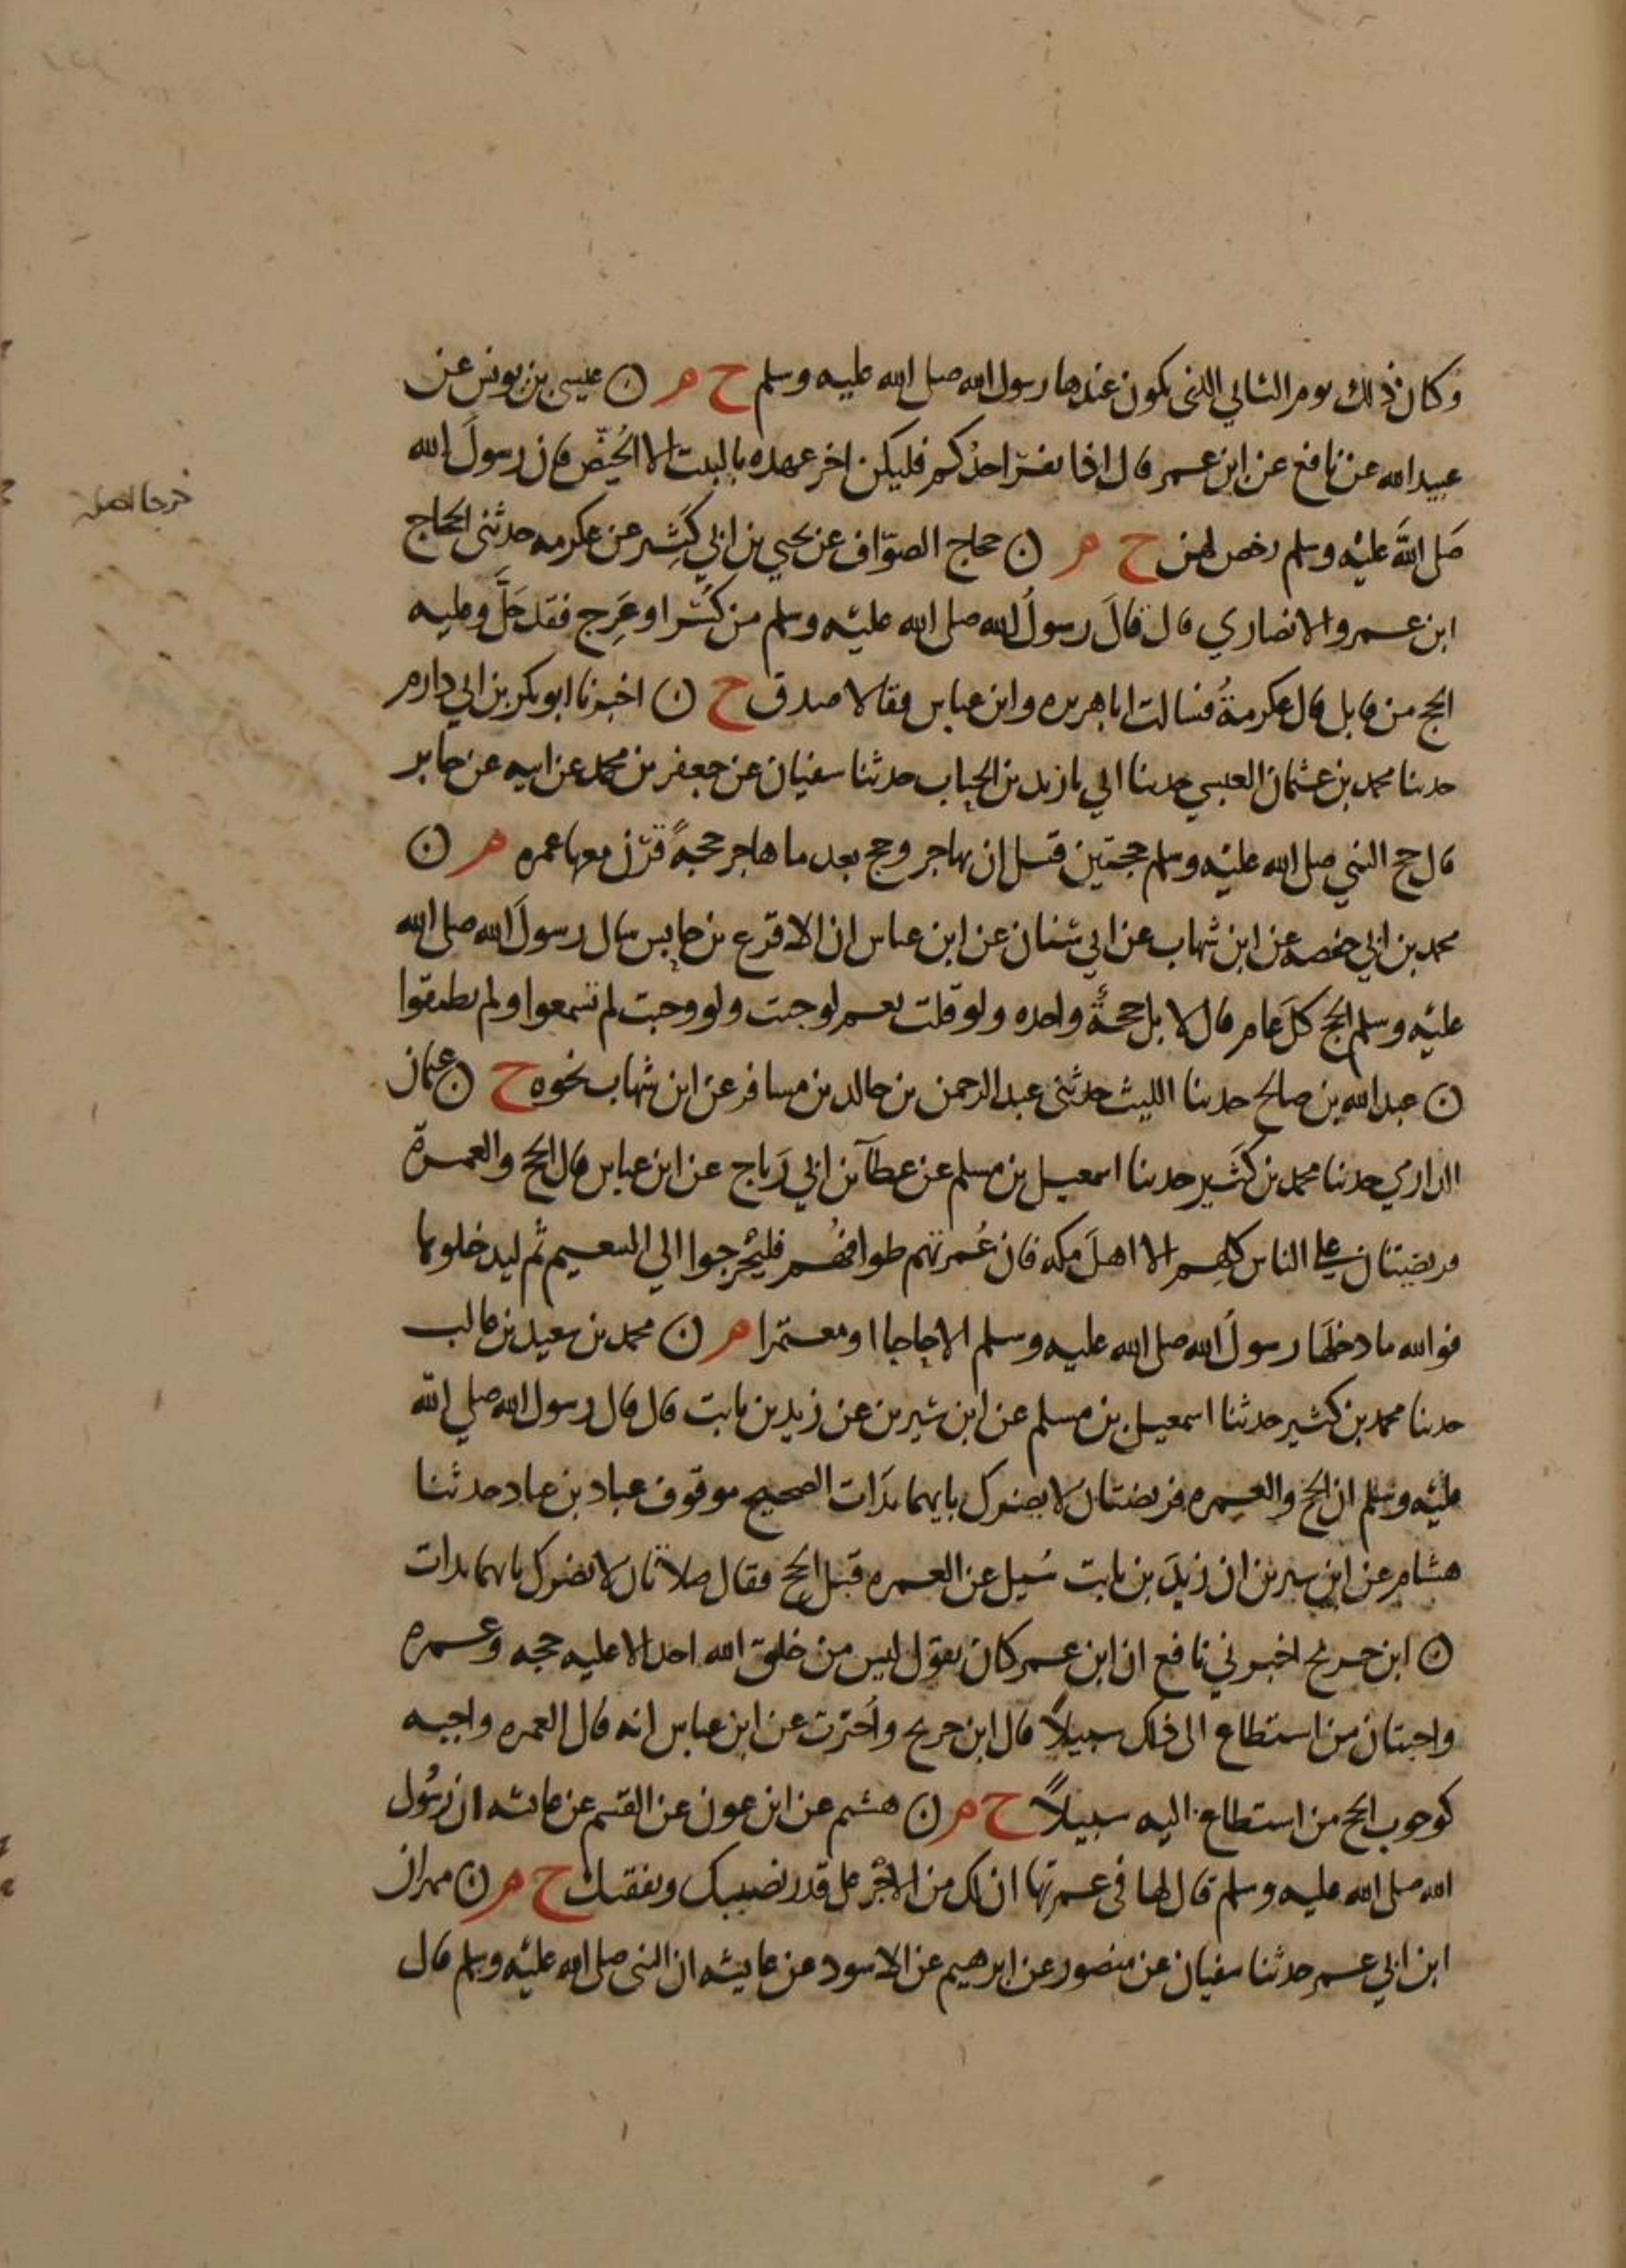 وكان ذلك يوم الثاني الذي يكون عندها رسول الله صلى الله عليه وسلم خ م ن عيسى بن يونس عن
عبيد الله عن نافع عن ابن عمر قال اذا نفر احدكم فليكن اخر عهده بالبيت الا الحُيّض فان رسولَ الله
خرجا اصله
صَلى اللهَ عليْه وسلم رخص لهن خ م ن حجاج الصوّاف عن يحيى بن ابي كَثِير عن عكرمه حدثنى الحجاج
ابن عمرو الانصاري قال قالَ رسولُ الله صلى الله عليْه وسلم من كُسر او عَرِج فقد حَلَّ وعليه
الحج من قابل قال عكرمةُ فسالت ابا هريره وابن عباس فقالا صدق خ ن اخبرنا ابو بكر بن ابي دارم
حدثنا محمد بن عثمان العبسي حدثنا ابي نا زيد بن الحباب حدثنا سفيان عن جعفر بن محمد عن ابيه عن جابر
قال حج النبي صلى الله عليْه وسلم حجتين قبل ان يهاجر وحج بعد ما هاجر حجةً قرَن معها عمره م ن
محمد بن ابي حفصه عن ابن شهاب عن ابي سنان عن ابن عباس ان الاقرع بن حابس سال رسولَ الله صلى الله
عليْه وسلم الحج كلَ عام قال لا بل حجةً واحده ولو قلت نعم لوجبت ولو وجبت لم تسمعوا ولم تطيقوا
ن عبد الله بن صالح حدثنا الليث حدثنى عبد الرحمن بن خالد بن مسافر عن ابن شهاب نحوه خ ن عثمان
الدارمي حدثنا محمد بن كَثير حدثنا اسمعيل بن مسلم عن عطآ بن ابي رَباح عن ابن عباس قال الحج والعمرة
فريضتان على الناس كلهم الا اهلَ مكه فان عُمرتهم طوافهُم فليخرجوا الي التنعيم ثم ليدخلوها
فوالله ما دخلَها رسولُ الله صلى الله عليه وسلم الا حاجا او معتمرا م ن محمد بن سعيد بن غالب
حدثنا محمد بن كثير حدثنا اسمعيل بن مسلم عن ابن سيرين عن زيد بن ثابت قال قال رسول الله صلي الله
عليْه وسلم ان الحج والعمره فريضتان لا يضرك بايهما بدَات الصحيح موقوف عباد بن عباد حدثنا
هشام عن ابن سيرين ان زيدَ بن ثابت سُيل عن العمره قبَل الحج فقال صلاتان لا يضرك بايهما بدات
ن ابن جريج اخبرني نافع ان ابن عمر كان يقول ليس من خلق الله احد الا عليه حجه وعمره
واجبتان من استطاع الى ذلك سبيلاً قال ابن جريج واُخبرت عن ابن عباس انه قال العمره واجبه
كوجوب الحج من استطاع اليه سبيلاً خ م ن هشيم عن ابن عون عن القسم عن عايشه ان رسُول
الله صلى الله عليه وسلم قال لها في عمرتها ان لك من الاجْر على قدر نصبك ونفقتك خ م ن مهران
ابن ابي عمر حدثنا سفيان عن منصور عن ابرهيم عن الاسود عن عايشه ان النبى صلى الله عليْه وسلم قال